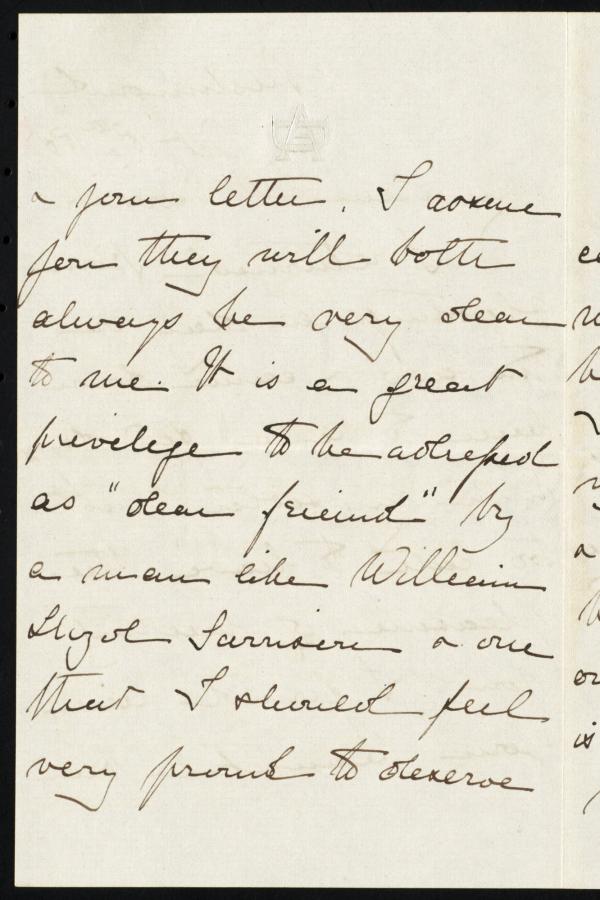 & your letter. I assure
you they will both
always be very dear
to me. It is a great
privilege to be addressed
as "dear friend" by
a man like William
Lloyd Garrison & one
that I should feel
very proud to deserve
is